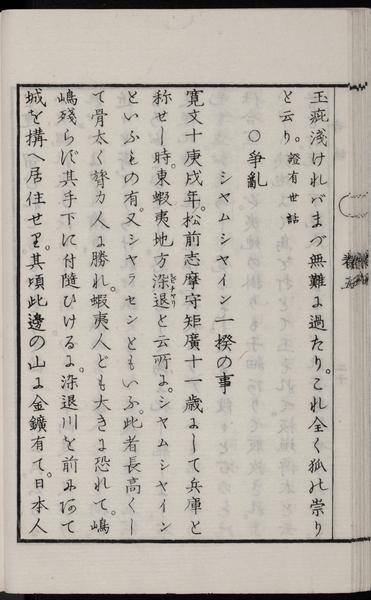 玉疵淺ければまづ無難に過たり。これ全く狐の祟り
と云り。證有世話
〇爭亂
シヤムシヤイン一揆の事
寛文十庚戌年。松前志摩守矩廣十一歳にして兵庫と
称せし時。東蝦夷地方漆退と云所に。シヤムシヤイン
といふもの有。又シヤラセンともいふ。此者長高くし
て骨太く膂力人に勝れ。蝦夷人ども大きに恐れて。嶋
嶋殘らず其手下に付隨ひけるよ。漆退川を前にあて
城を構へ居住せり。其頃此邊の山に金鑛有て。日本人